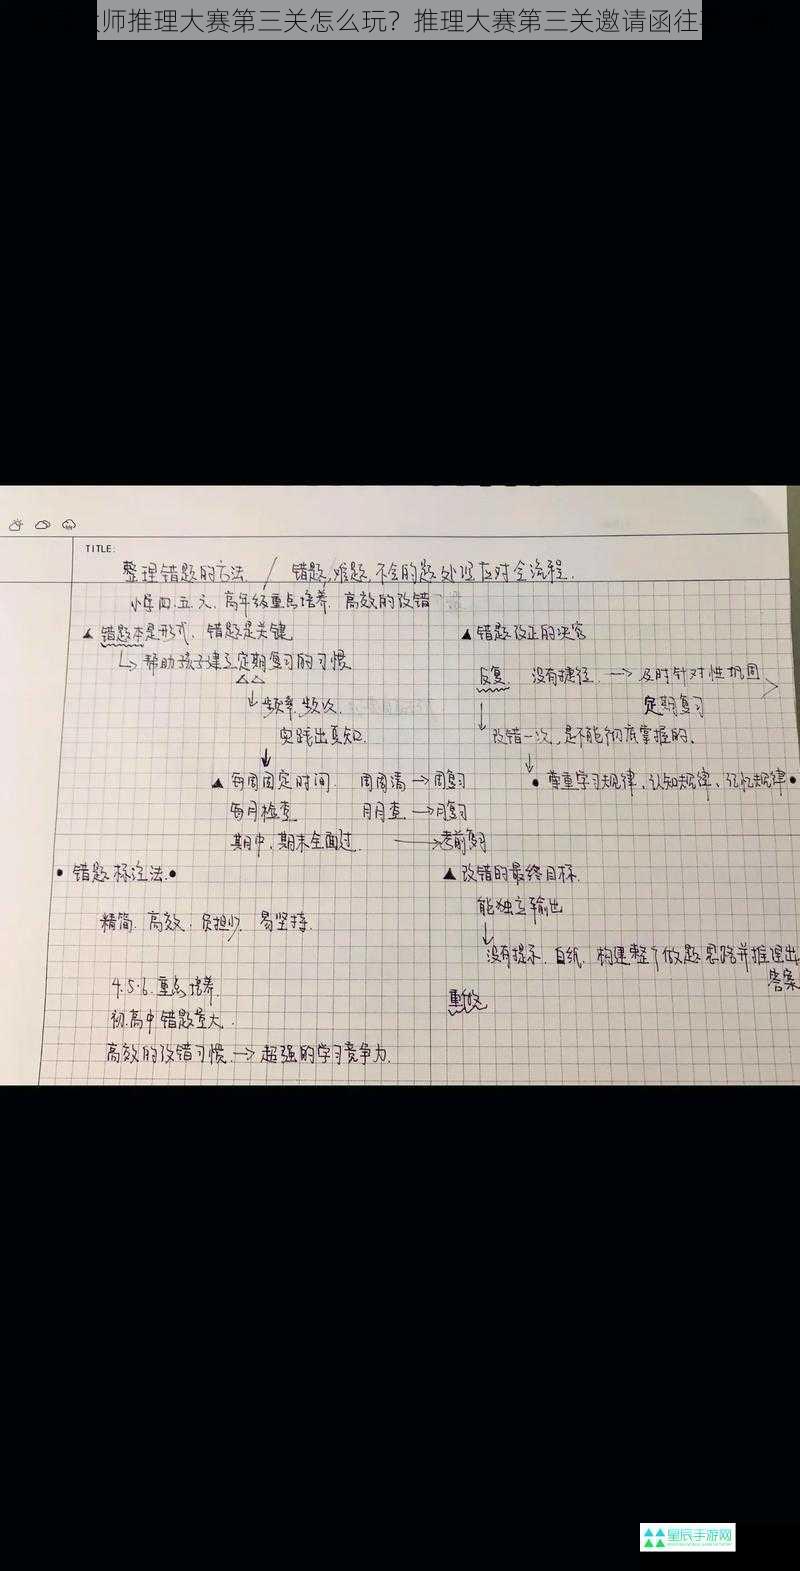 师推理大赛第三关怎么玩？推理大赛第三关邀请函往
TITLE:
整理错题的方法 / 错题,难题,不会的题处理应对全流程.
小学四.五.六.高年级重点培养.高效的改错
▲错题本是形式.错题是关键
↳帮助孩子建立定期复习的习惯
△△
↓频率.频次.
实践出真知.
↓
▲每周固定时间. 周周清→周复习
每月检查 月月查→月复习
期中.期末全面过.→考前复习
•错题标注法.•
精简.高效.负担少.易坚持.
4.5.6.重点培养.
初.高中错题量大.
高效的改错习惯.→超强的学习竞争力.
▲错题改正的决窍
反复. 没有捷径.→及时针对性巩固
定期复习
↓改错一次,是不能彻底掌握的.
↓•尊重学习规律、认知规律、记忆规律•
▲改错的最终目标.
能独立输出
↓没有提示.白纸.构建整个做题思路并推理出
答案
重做
星辰手游网